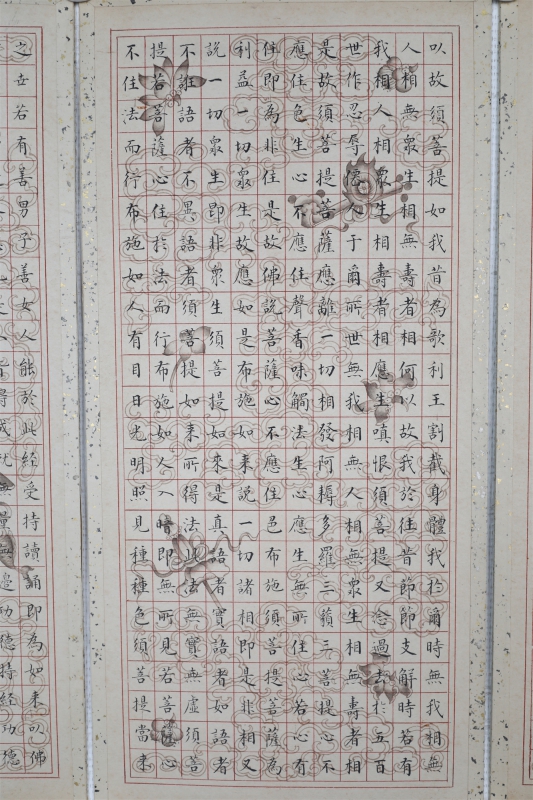 以故須菩提如我昔為歌利王割截身體我於爾時無我相無
人相無眾生相無壽者相何以故我於往昔節節支解時若有
我相人相眾生相壽者相應生嗔恨須菩提又念過去於五百
世作忍辱僊人于爾所世無我相無人相無眾生相無壽者相
是故須菩提菩薩應離一切相發阿耨多羅三藐三菩提心不
應住色生心不應住聲香味觸法生心應生無所住心若心有
住即為非住是故佛說菩薩心不應住色布施須菩提菩薩為
利益一切眾生故應如是布施如来說一切諸相即是非相又
說一切眾生即非眾生須菩提如来是真語者實語者如語者
不誑語者不異語者須菩提如来所得法此法無實無虛須菩
提若菩薩心住於法而行布施如人入暗即無所見若菩薩心
不住法而行布施如人有目日光明照見種種色須菩提當来
之世若有善男子善女人能於此經受持讀誦即為如来以佛
得成就無量無邊功德持經功德